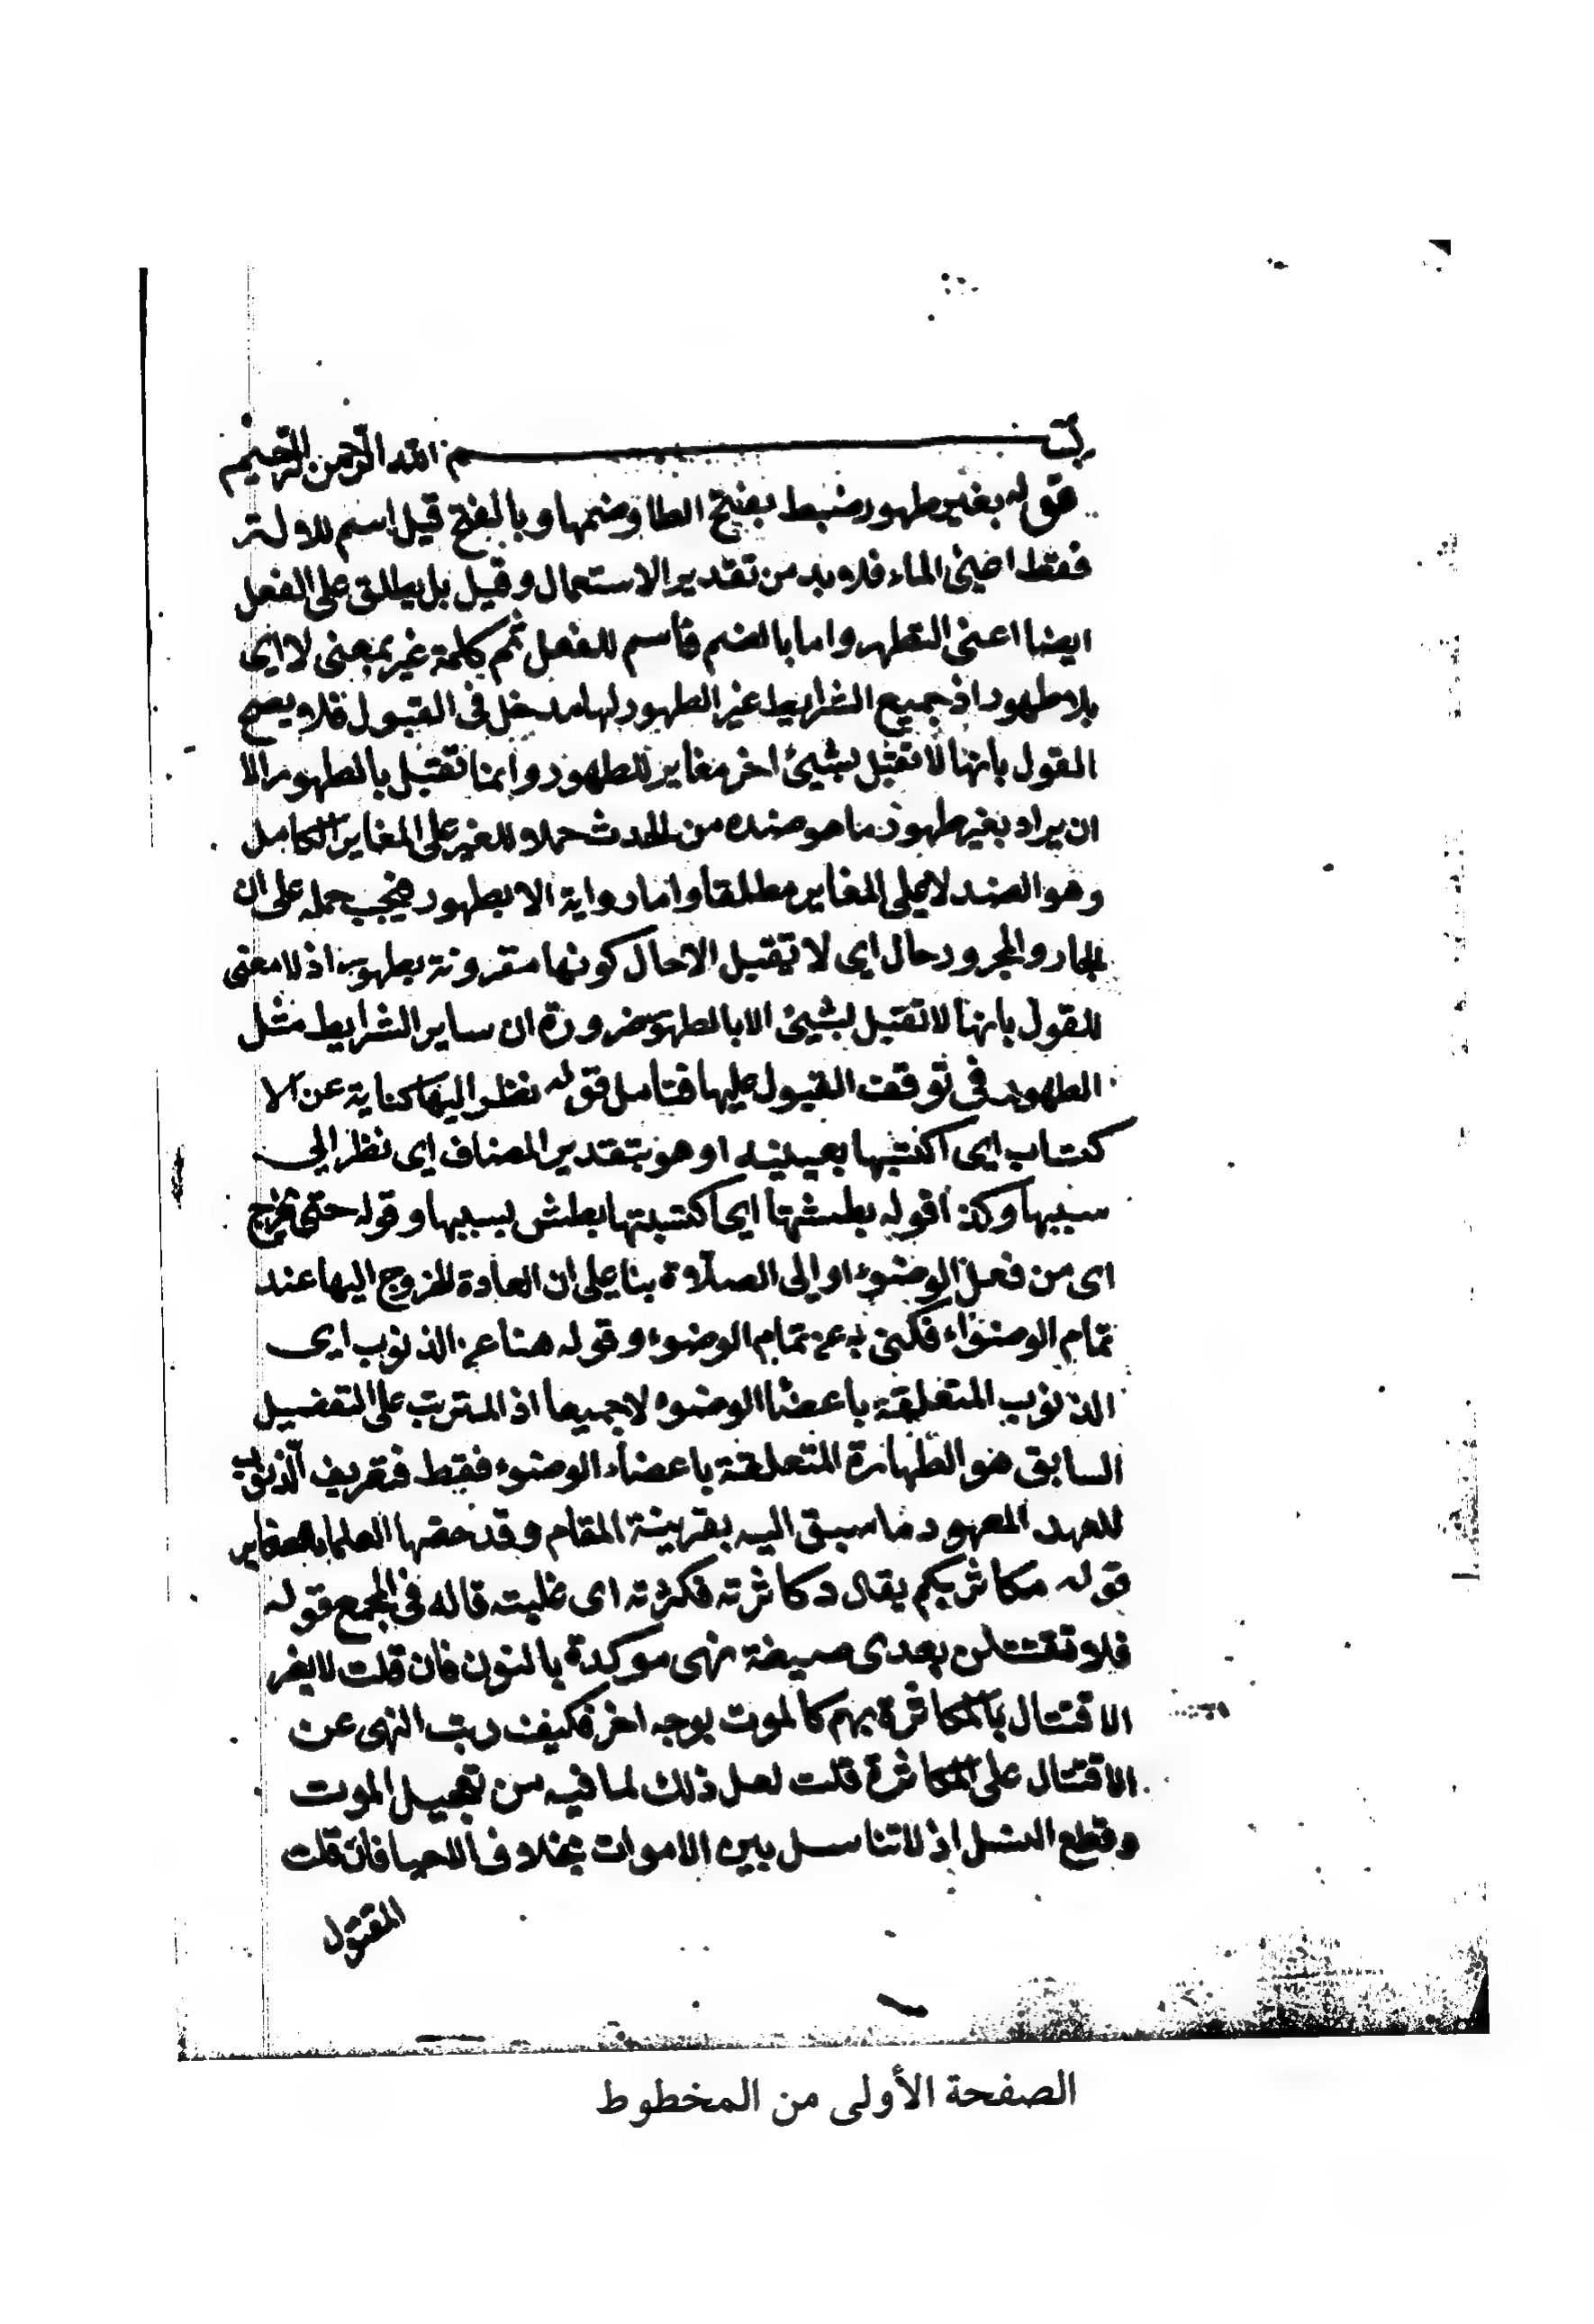 بسم الله الرحمن الرحيم
قوله بغير طهور ضبط بفتح الطا وضمها وبالفتح قيل اسم للالة
فقط اعني الماء فلا بد من تقدير الاستعمال وقيل بل يطلق على الفعل
ايضا اعنى التطهر واما بالضم فاسم للفعل ثم كلمة غير بمعنى لا اي
بلا طهور اذ جميع الشرايط غير الطهور لها مدخل في القبول فلا يصح
القول بانها لا تقبل بشيئ اخر مغاير للطهور وانما تقبل بالطهور الا
ان يراد بغير طهور ما هو ضده من الحدث حملا للغير على المغاير الكامل
وهو الضد لا على المغاير مطلقا واما رواية الا بطهور فيجب حمله على ان
الجار والمجرور حال اى لا تقبل الا حال كونها مقرونة بطهور اذ لا معنى
للقول بانها لا تقبل بشيئ الا بالطهور ضرورة ان ساير الشرايط مثل
الطهور في توقف القبول عليها فتامل قوله نظر اليها كناية عن الا
كتساب اى اكتسبها بعينيه او هو بتقدير المضاف اى نظر الى
سببها وكذا قوله بطشتها اي اكتسبتها بطش بسببها وقوله حتى يخرج
اى من فعل الوضوء او الى الصلاة بنا على ان العادة الخروج اليها عند
تمام الوضوء فكنى به عن تمام الوضوء وقوله هنا من الذنوب اى
الذنوب المتعلقة باعضا الوضوء لا جميعا اذ المترتب على التفصيل
السابق هو الطهارة المتعلقة باعضاء الوضوء فقط فتعريف الذنوب
للعهد المعهود ما سبق اليه بقرينة المقام وقد خصها العلماء بالصغاير
قوله مكاثر بكم يقال كاثرته فكثرته اى غلبته قاله في المجمع قوله
فلا تقتتلن بعدى صيغة نهى موكدة بالنون فان قلت لا يضر
الاقتتال بالمكاثرة بهم كالموت بوجه اخر فكيف رتب النهى عن
الاقتتال على المكاثرة قلت لعل ذلك لما فيه من تعجيل الموت
وقطع النسل اذ لا تناسل بين الاموات بخلاف الاحيا فان قلت
المقتول
الصفحة الأولى من المخطوط